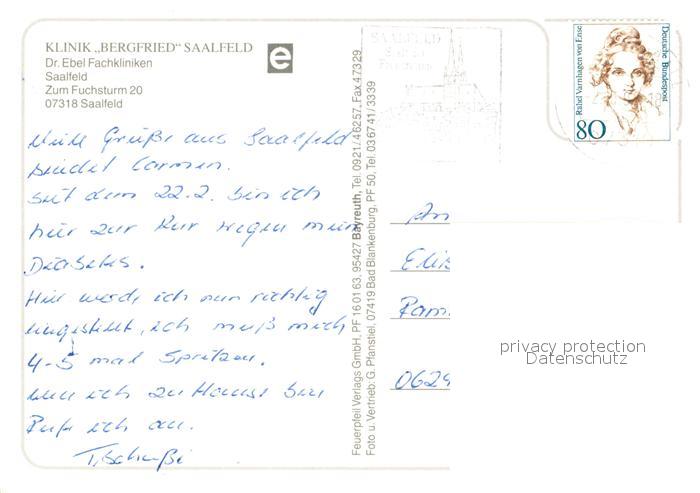 KLINIK „BERGFRIED“ SAALFELD
Dr. Ebel Fachkliniken
Saalfeld
Zum Fuchsturm 20
07318 Saalfeld
e
Grüße aus Saalfeld
sendet Carmen.
seit dem 22.2. bin ich
hier zur Kur wegen mein
Diabetes.
Hier werde ich nun richtig
eingestellt, ich muß mich
4-5 mal Spritzen.
wenn ich zu Hause bin
Rufe ich an.
Tschüßi
Feuerpfeil Verlags GmbH, PF 16 01 63, 95427 Bayreuth, Tel. 0921/46257, Fax 47329
Foto u. Vertrieb: G. Pfanstiel, 07419 Bad Blankenburg, PF 50, Tel. 036741/3339
SAALFELD
Rahel Varnhagen von Ense
Deutsche Bundespost
80
An
Elis
Ram
0629
privacy protection
Datenschutz